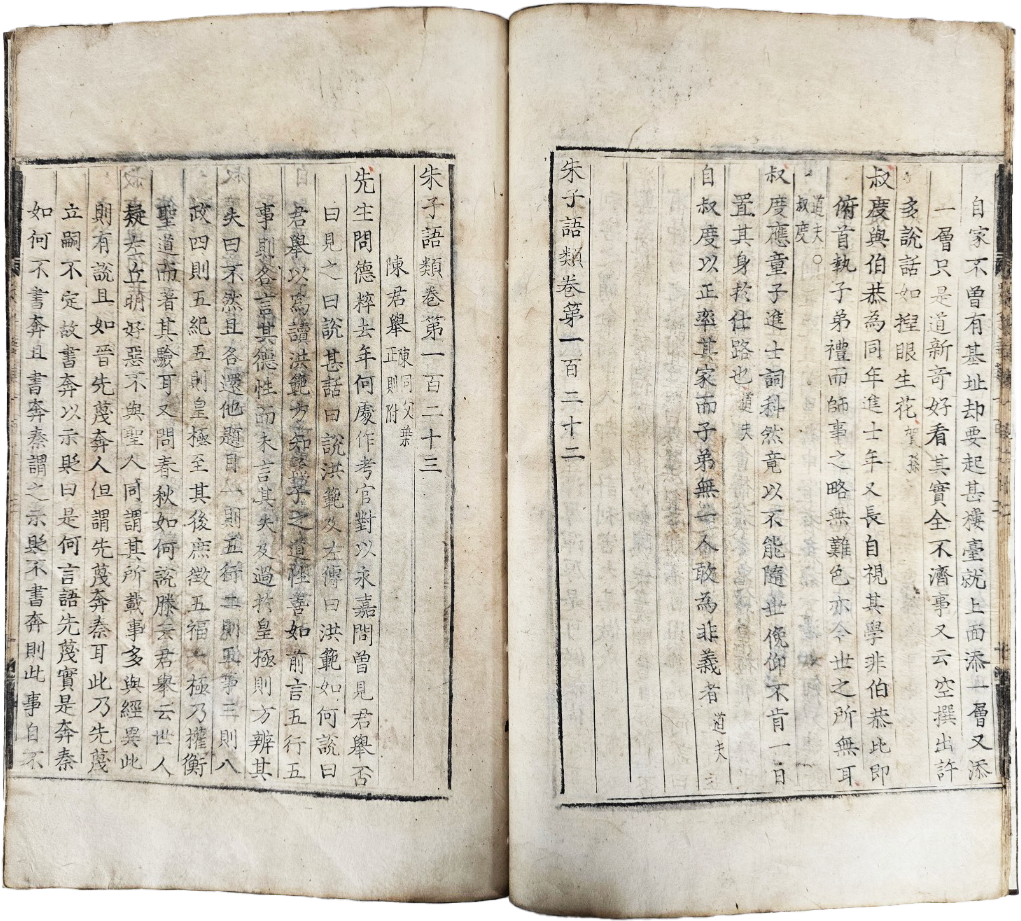 自家不曾有基址却要起甚樓臺就上面添一層又添
一層只是道新奇好看其實全不濟事又云空撰出許
多說話如揑眼生花賀孫
叔度與伯恭為同年進士年又長自視其學非伯恭比即
俯首執子弟禮而師事之略無難色亦今世之所無耳
道夫○叔度
叔度應童子進士詞科然竟以不能隨世俛仰不肯一日
置其身於仕路也道夫
自叔度以正率其家而子弟無一人敢為非義者道夫
朱子語類卷第一百二十二
朱子語類卷第一百二十三
陳君舉陳同父葉正則附
先生問德粹去年何處作考官對以永嘉問曾見君舉否
曰見之曰說甚話曰說洪範及左傳曰洪範如何說曰
君舉以為讀洪範方知孟子之道性善如前言五行五
事則各言其德性而未言其失及過於皇極則方辨其
失曰不然且各還他題目一則五行二則五事三則八
政四則五紀五則皇極至其後庶徵五福六極乃權衡
聖道而著其驗耳又問春秋如何說滕云君舉云世人
疑左丘明好惡不與聖人同謂其所載事多與經異此
則有說且如晉先蔑奔人但謂先蔑奔秦耳此乃先蔑
立嗣不定故書奔以示貶曰是何言語先蔑實是奔秦
如何不書奔且書奔秦謂之示貶不書奔則此事自不